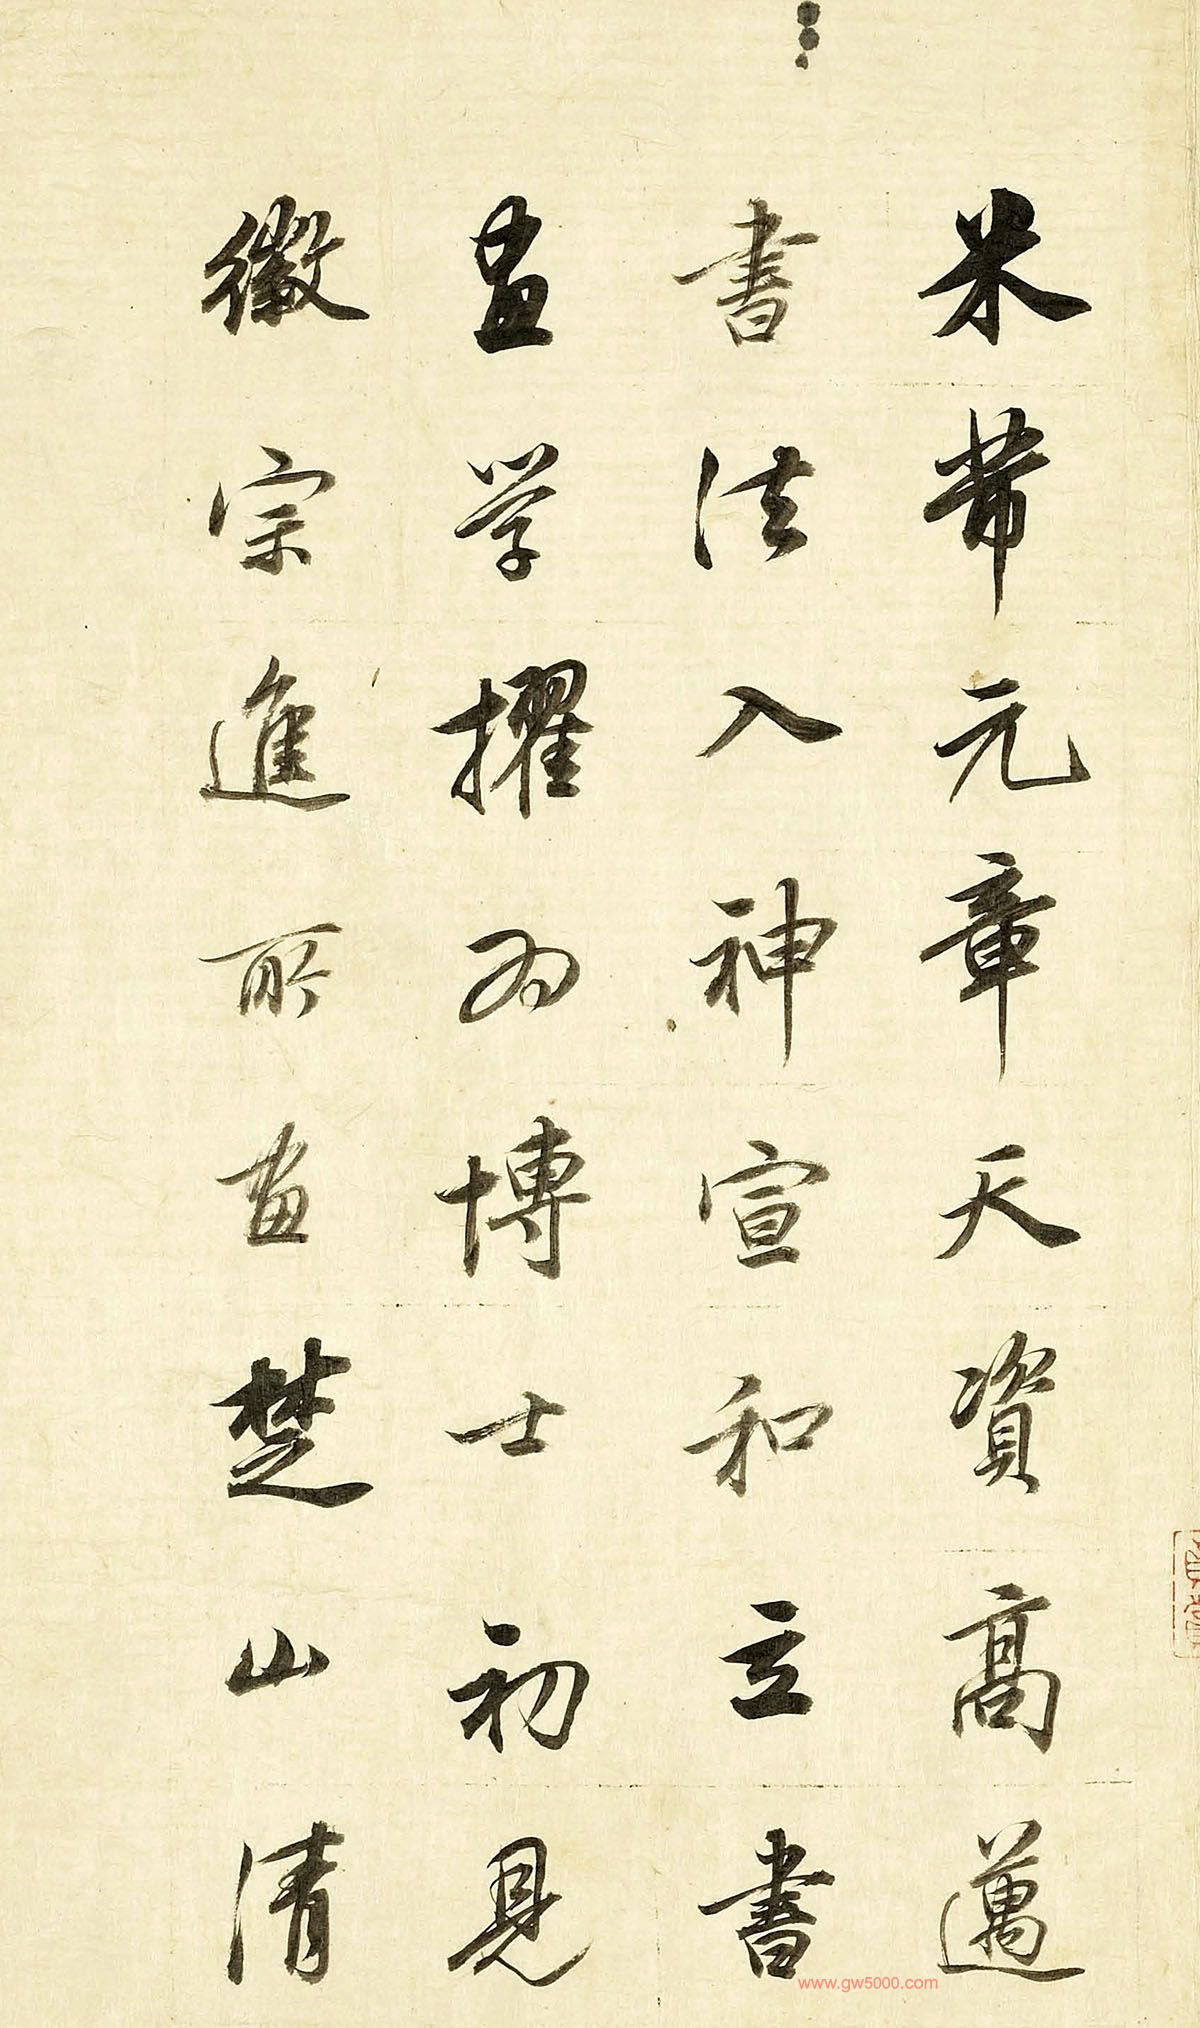 米芾元章天資高邁
書法入神宣和立書
畫学擢為博士初見
徽宗進所畫楚山清
www.gw5000.com